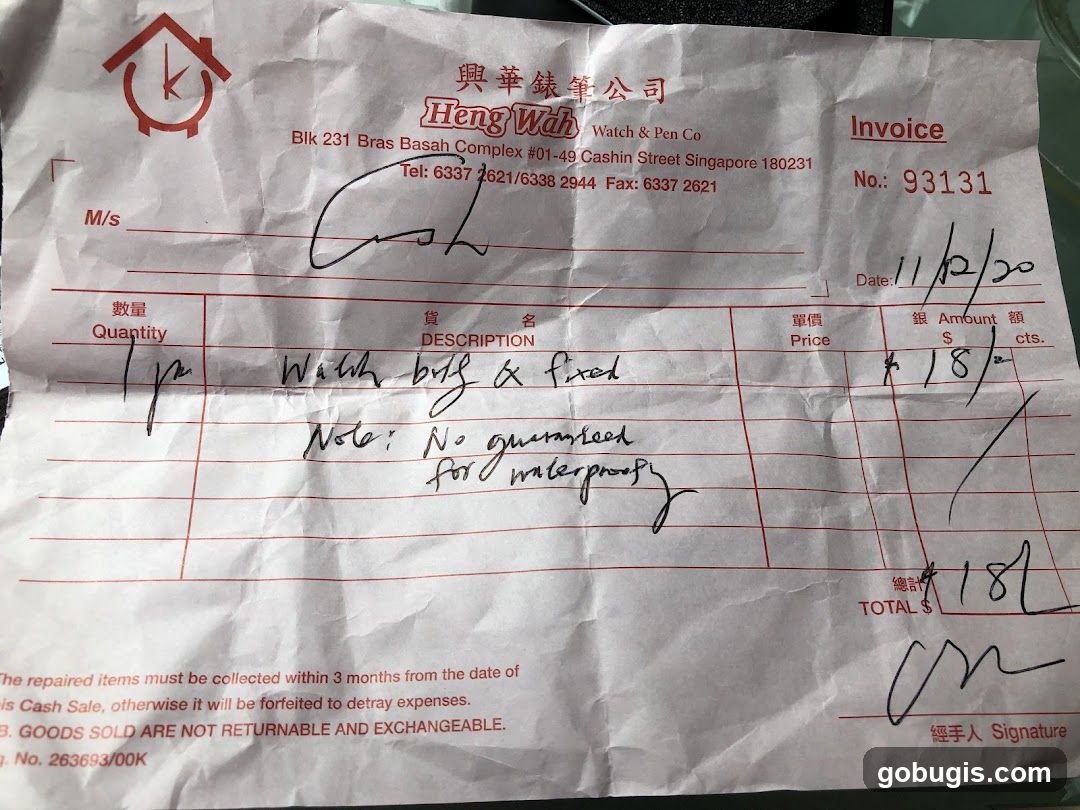 興華錶筆公司
Heng Wah Watch & Pen Co
Blk 231 Bras Basah Complex #01-49 Cashin Street Singapore 180231
Tel: 6337 2621/6338 2944 Fax: 6337 2621
Invoice
No.: 93131
M/s Cash
Date: 11/12/20
數量 貨 名 單價 銀 Amount 額
Quantity DESCRIPTION Price $ cts.
1 pc Watch & fixed $ 18/-
Note: No guaranteed
for waterproofy
總計
TOTAL $ $ 18/
The repaired items must be collected within 3 months from the date of
is Cash Sale, otherwise it will be forfeited to detray expenses.
B. GOODS SOLD ARE NOT RETURNABLE AND EXCHANGEABLE.
g. No. 263693/00K
經手人 Signature
gobugis.com